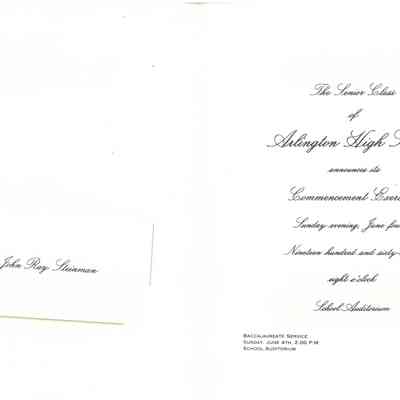 John Ray Steinman
The Senior Class
of
Arlington High
announces its
Commencement
Sunday evening, June
Nineteen hundred and
eight o'clock
School Auditorium
Baccalaureate Service
Sunday, June 4th, 2:00 P.M
School Auditorium